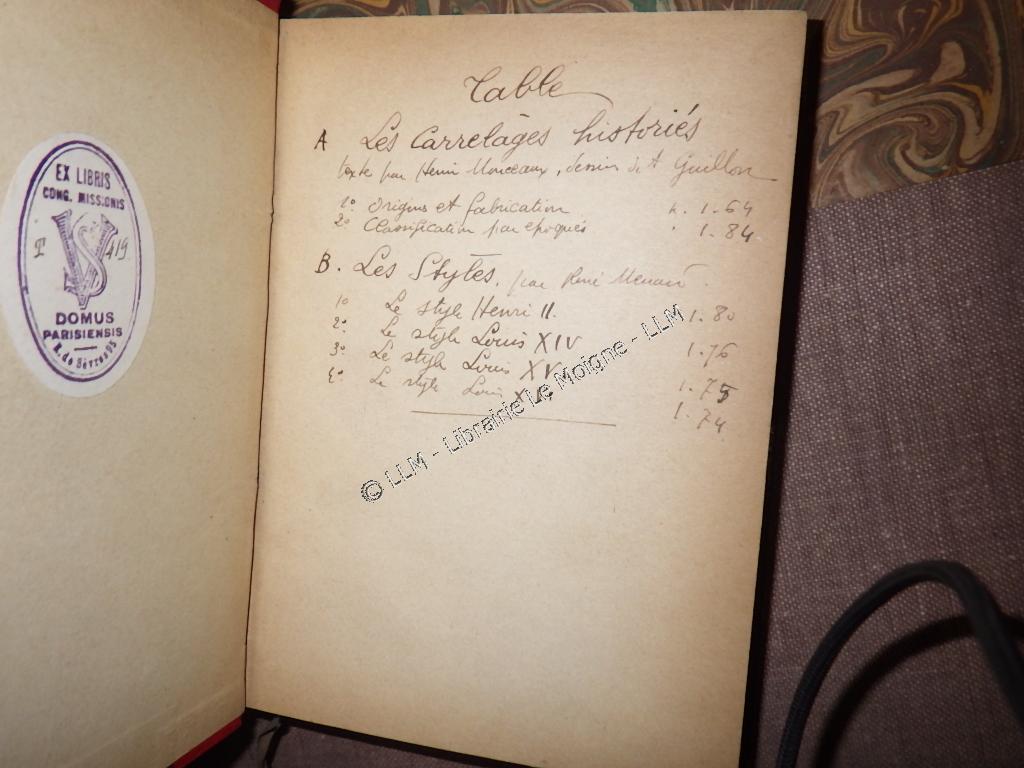 EX LIBRIS
CONG. MISSIONIS
419
DOMUS
PARISIENSIS
R. de Sèvres 95
Table
A Les Carrelages historiés
texte par Henri Monceaux, dessins de A Guillon
1º Origines et fabrication p. 1-64
2º Classification par époques 1-84
B. Les Styles, par René Menard.
1º Le style Henri II. 1-80
2º Le style Louis XIV 1-76
3º Le style Louis XV 1-75
4º Le style Louis 1-74
© LLM - Librairie Le Moigne - LLM